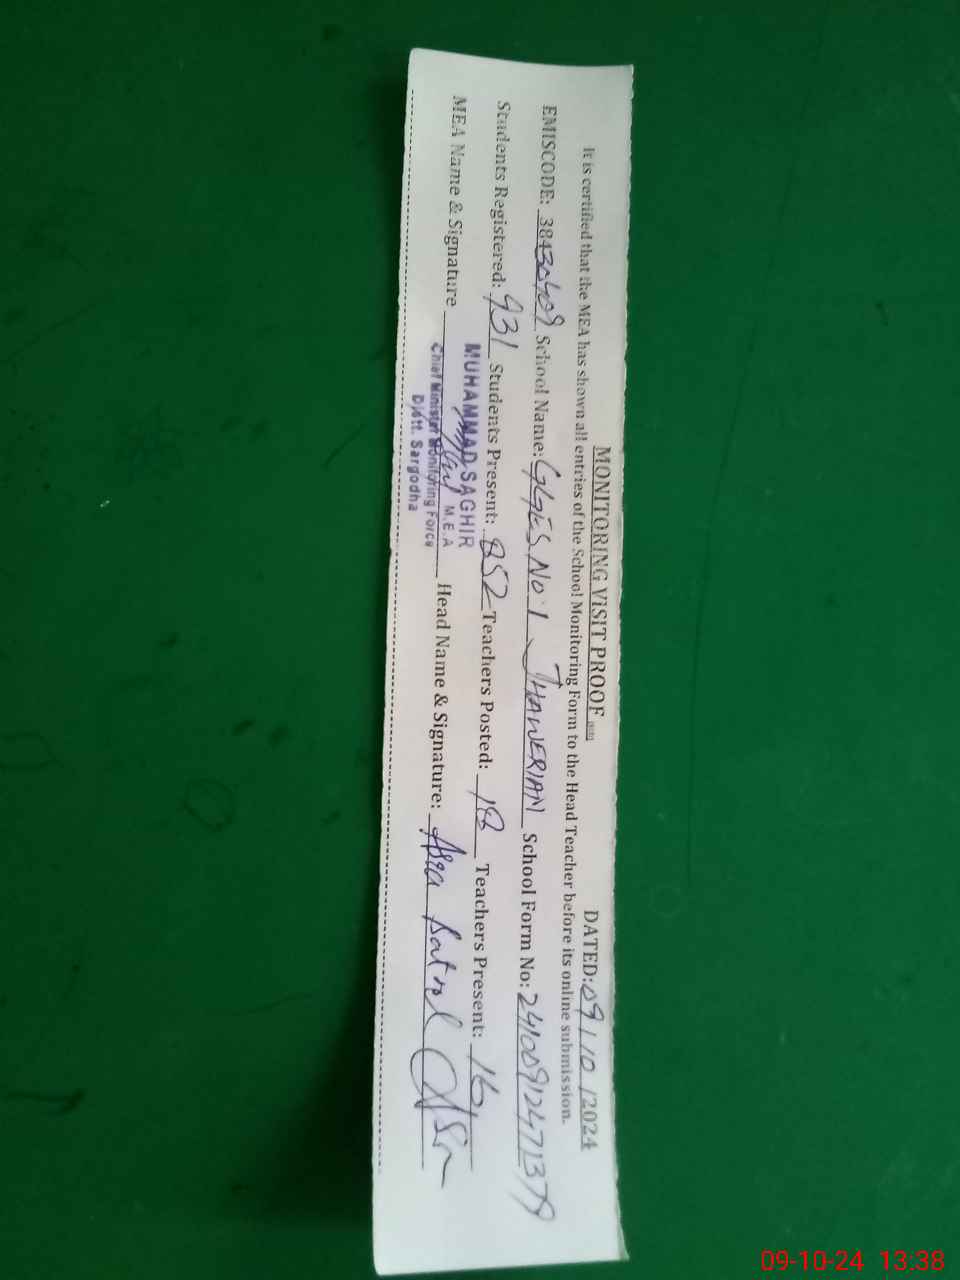 MONITORING VISIT PROOF DATED: 09/10/2024
It is certified that the MEA has shown all entries of the School Monitoring Form to the Head Teacher before its online submission.
EMISCODE: 38430409 School Name: GGES No 1 JHAWERIAN School Form No: 24100912471379
Students Registered: 931 Students Present: 852 Teachers Posted: 18 Teachers Present: 16
MEA Name & Signature Head Name & Signature: Asia Batool
MUHAMMAD SAGHIR
M.E.A
Chief Minister Monitoring Force
Distt. Sargodha
09-10-24 13:38